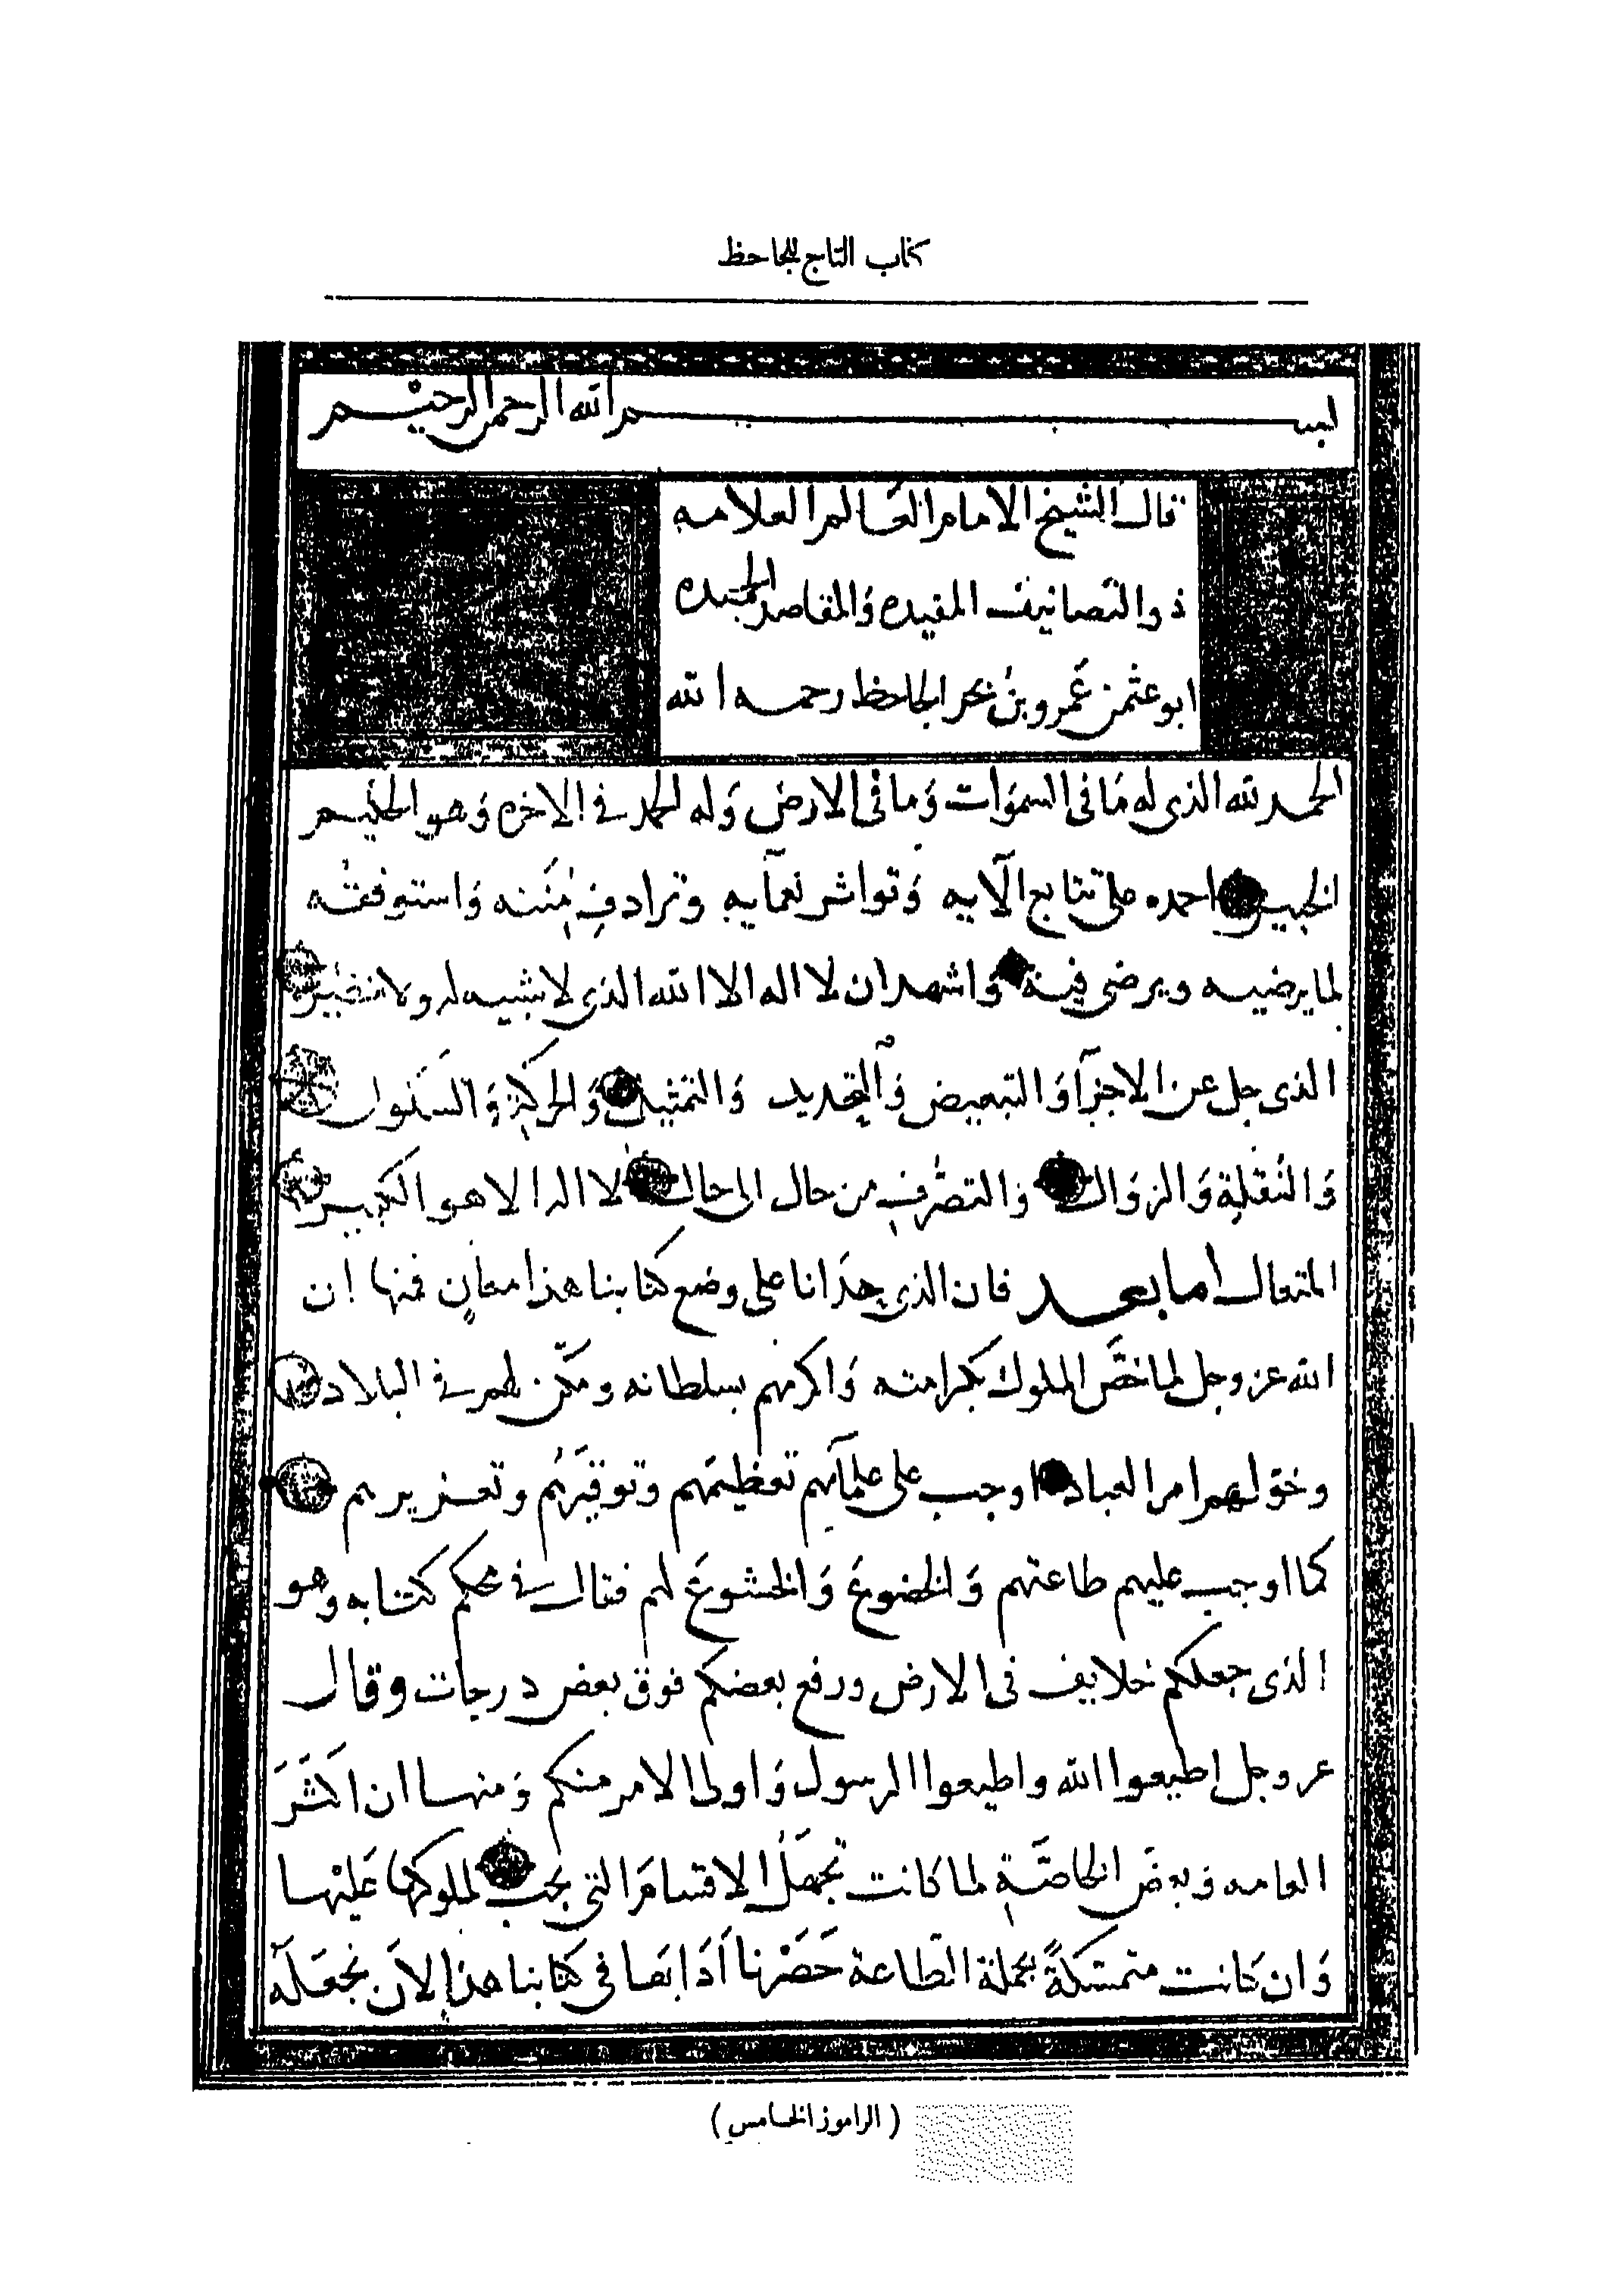 كتاب التاج للجاحظ
بسم الله الرحمن الرحيم
قال الشيخ الامام العالم العلامه
ذو التصانيف المفيده وَالمقاصد الحميده
ابو عثمن عَمرو بنُ بحر الجاحظ رحمه الله
الحمد لله الذى له مَا فى السموَات وَما فى الارض وَله الحمد فى الاخره وَهو الحكيم
الخبير احمده على تتابع آلآيه وَتواتر نعمآيه وترادفِ مِنَنه وَاستوفقه
لما يرضيه ويرضى فيه وَاشهد ان لا اله الا الله الذى لا شبيه له ولا نظير
الذى جل عن الاجزآ وَالتبعيض وَالتحديد وَالتمثيل وَالحركةِ وَالسكون
وَالنُقلةِ وَالزوَال وَالتصرُّفِ من حال الى حال لا اله الا هو الكبير
المتعال اما بعد فان الذى حدَانا على وضع كتابنا هذا معانٍ فمنها ان
الله عز وجل لما خصَّ الملوك بكرامته وَاكرمهم بسلطانه ومكّن لهم فى البلاد
وخوّلهم امر العباد اوجب على علمآيهم تعظيمَهم وتوقيرَهُم وتعزيرهم
كما اوجب عليهم طاعتهم وَالخضوعَ وَالخشوعَ لهم فقال فى محكم كتابه وهو
الذى جعلكم خلايف فى الارض ورفع بعضكم فوق بعض درجات وقال
عز وجل اطيعوا الله واطيعوا الرسول وَاولى الامر منكم وَمنها ان اكثرَ
العامه وَبعضَ الخاصَّةِ لما كانت تجهَلُ الاقسامَ التى تجب لملوكها عَليْها
وَان كانت متمسّكةً بجملة الطّاعة حَصَرْنا آدَابَها فى كتابنا هذا لان نجعَله
(الراموز الخامس)